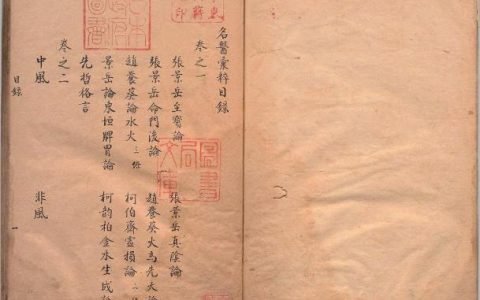 名醫彙粹目錄
卷之一
張景岳至寶論 張景岳真陰論
張景岳命門後論 趙養葵火為先天論
趙養葵論水火 二條 柯伯齋虛損論
景岳論東垣脾胃論 柯韵柏金水生成
先哲格言
卷之二
中風 非風
目錄 一
圖書局文庫